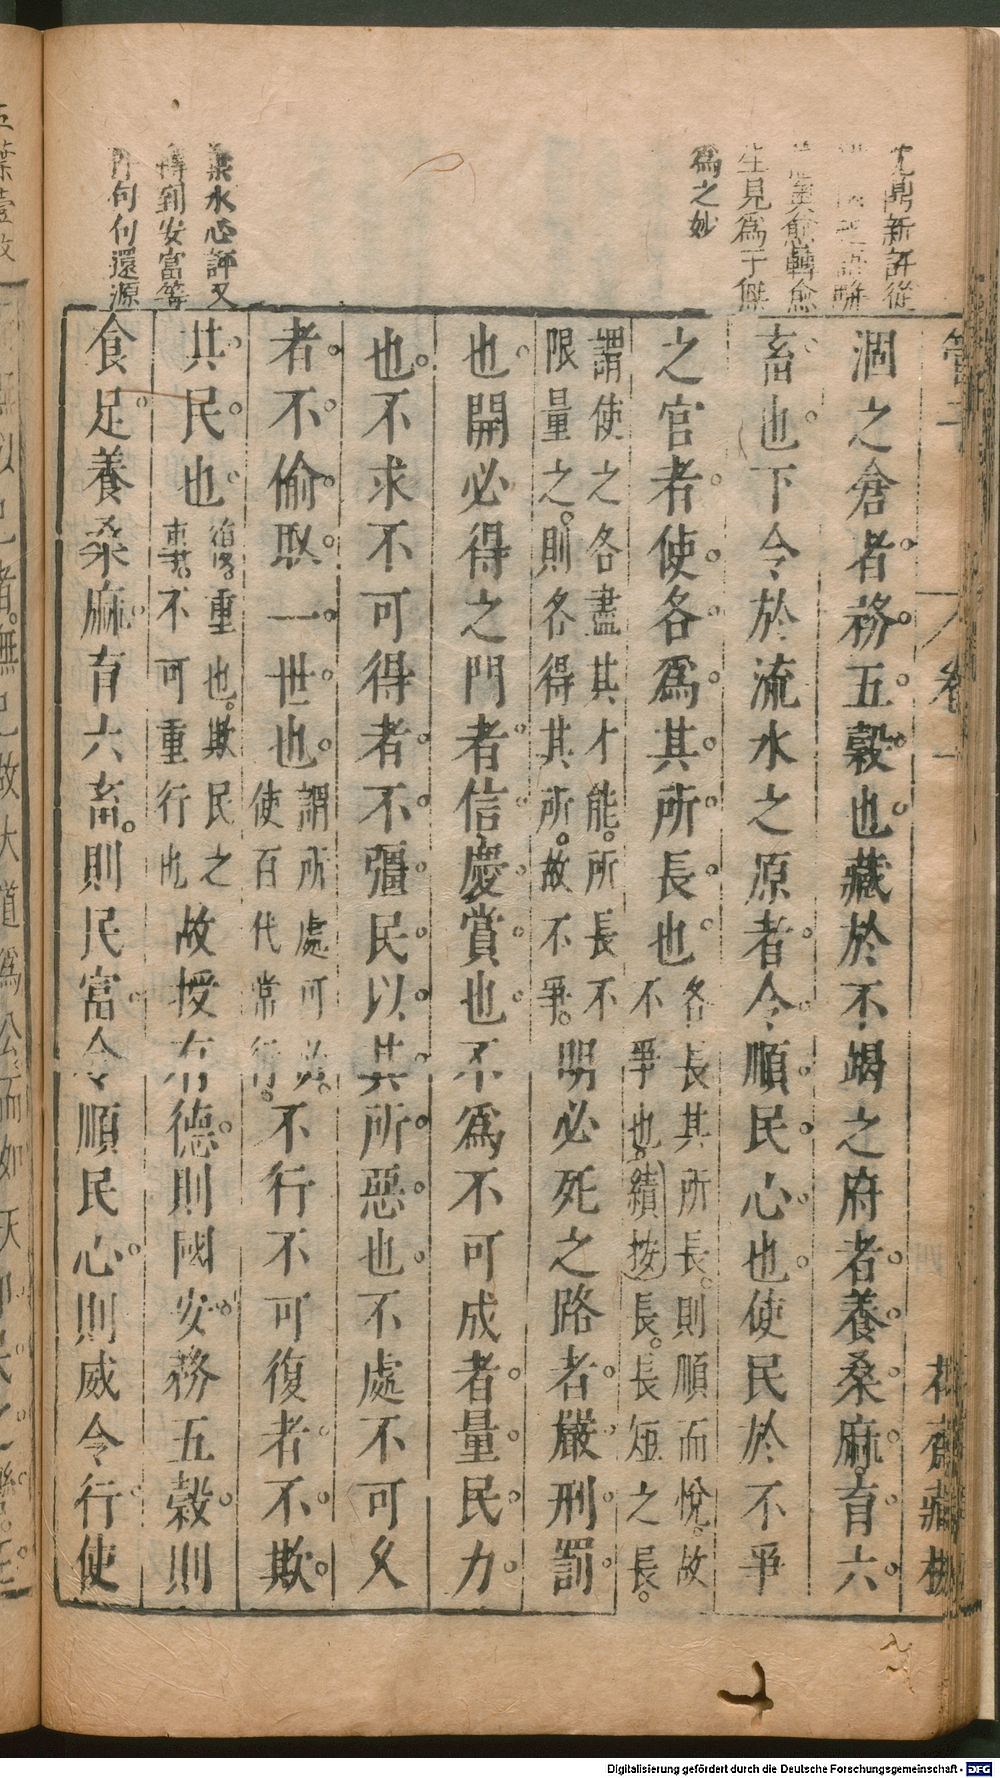 管子 卷一 花齋藏板
沈鼎新評從
愈轉愈
生見爲于僕
爲之妙
葉水心評又
轉到安富等
句句還源
涸之倉者務五穀也藏於不竭之府者養桑麻育六
畜也下令於流水之原者令順民心也使民於不爭
之官者使各爲其所長也
各長其所長則順而悅故
不爭也績按長長短之長
謂使之各盡其才能所長不
限量之則各得其所故不爭
明必死之路者嚴刑罰
也開必得之門者信慶賞也不爲不可成者量民力
也不求不可得者不彊民以其所惡也不處不可久
者不偷取一世也
謂所處可
使百代常行
不行不可復者不欺
其民也
重也欺民之
不可重行也
故授有德則國安務五穀則
食足養桑麻育六畜則民富令順民心則威令行使
五葉壹放
以已者無已故大道爲公而如天
Digitalisierung gefördert durch die Deutsche Forschungsgemeinschaft - DFG